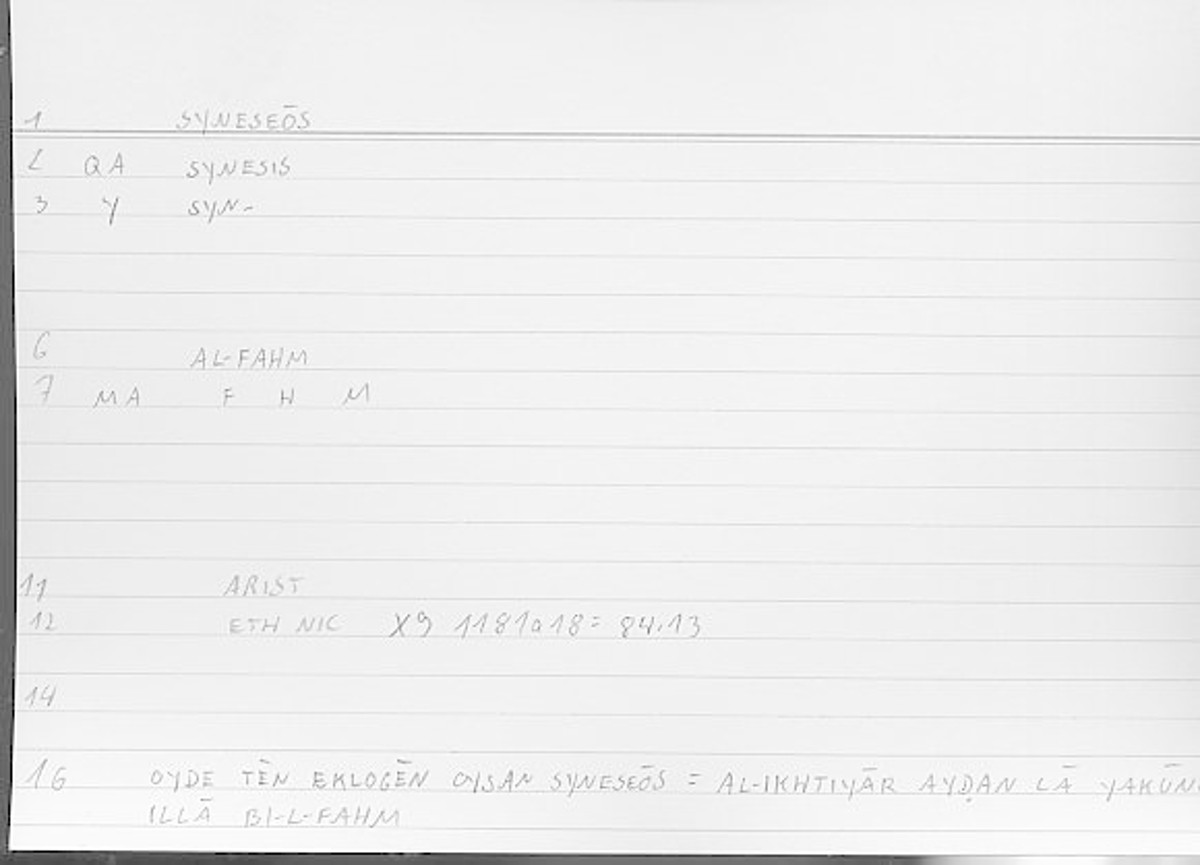 1 SYNESEŌS
2 QA SYNESIS
3 Y SYN-
6 AL-FAHM
7 MA F H M
11 ARIST
12 ETH NIC X9 1181a18= 84.13
14
16 OYDE TĒN EKLOGĒN OYSAN SYNESEŌS = AL-IKHTIYĀR AYḌAN LĀ YAKŪN
ILLĀ BI-L-FAHM